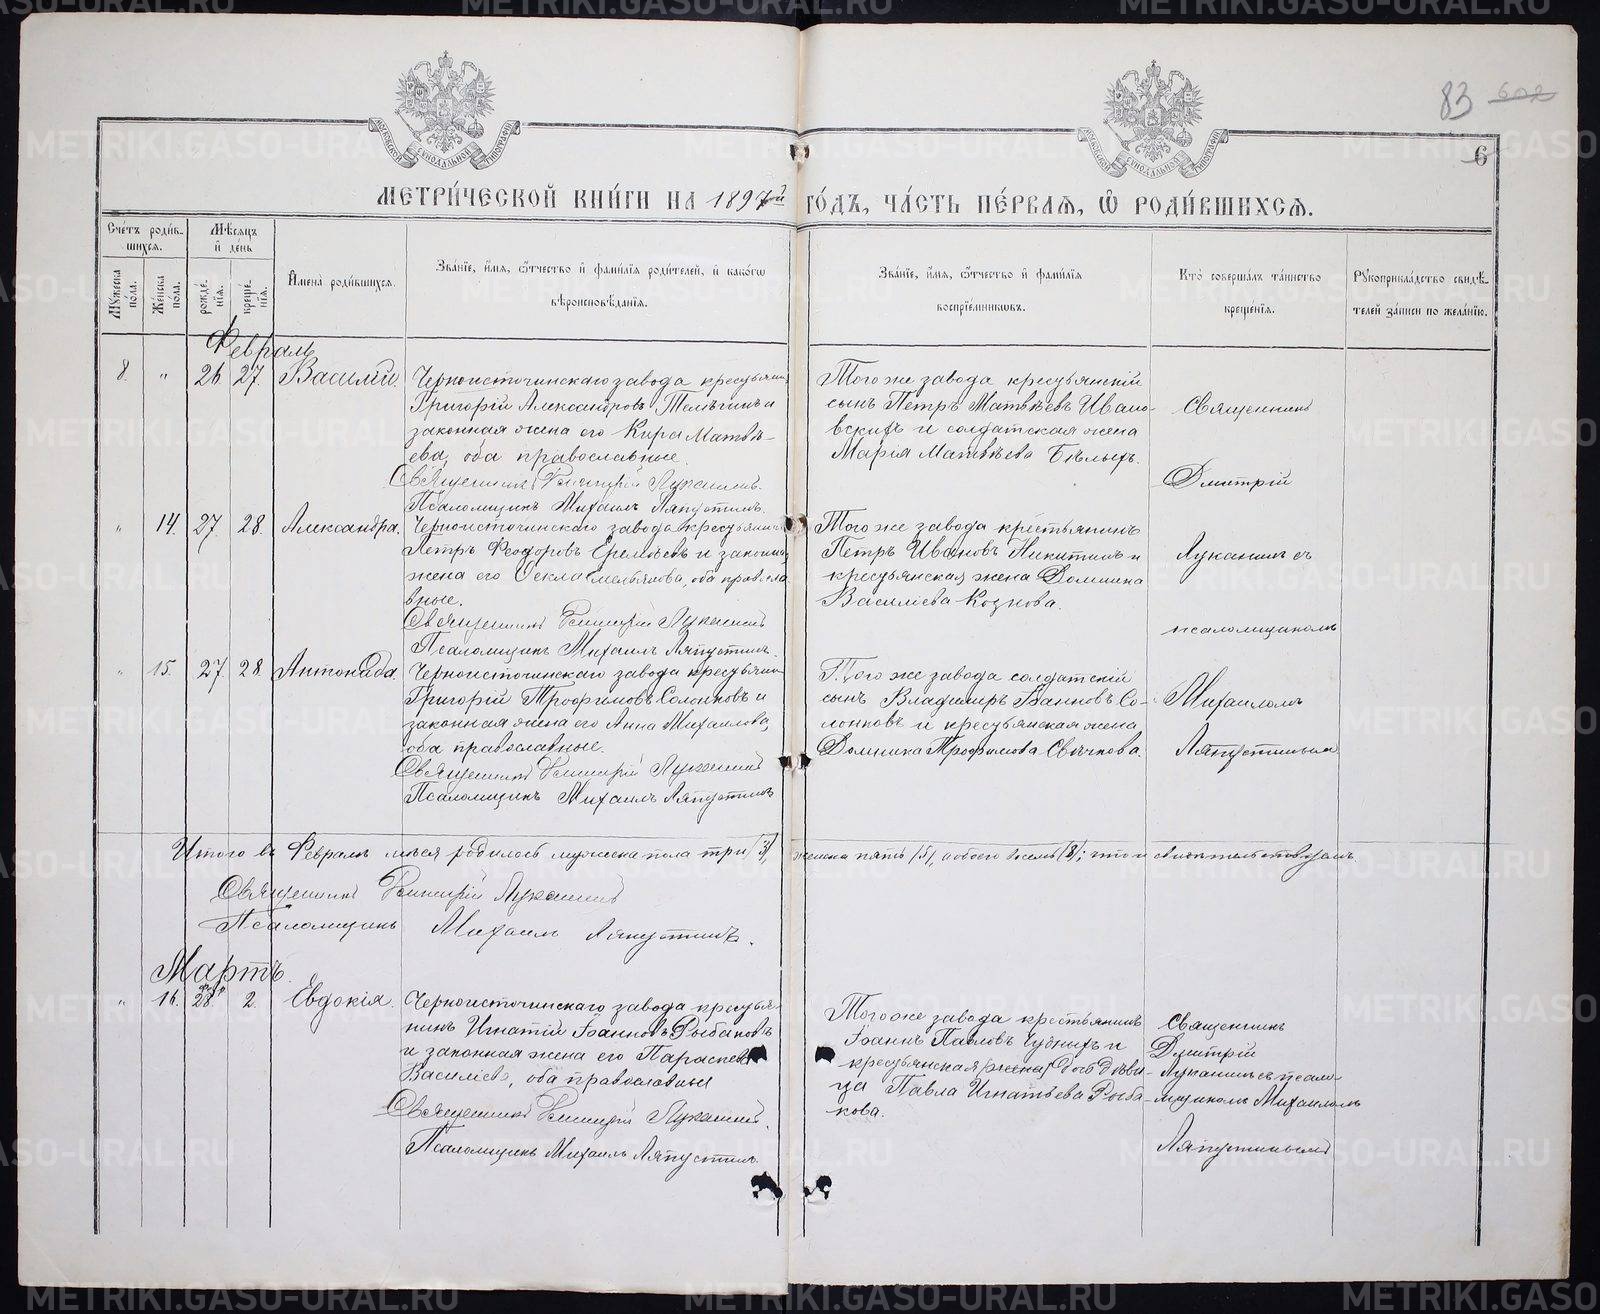 83 602
6
МОСКОВСКОЙ СѴНОДАЛЬНОЙ ТИПОГРАФІИ
МОСКОВСКОЙ СѴНОДАЛЬНОЙ ТИПОГРАФІИ
МЕТРИ́ЧЕСКОЙ КНИ́ГИ НА 1897й ГО́ДЪ, ЧА́СТЬ ПЕ́РВАЯ, Ѡ РОДИ́ВШИХСЯ.
Сче́тъ роди́в-
шихся.
Мѣ́сяцъ
и҆ де́нь
Мꙋ́жеска по́ла.
Же́нска по́ла.
рожде́нїя.
креще́нїя.
И҆мена̀ роди́вшихся.
Зва́нїе, и҆́мя, ѻ҆́тчество и҆ фами́лїя роди́телей, и҆ како́гѡ
вѣроисповѣ́данїя.
Зва́нїе, и҆́мя, ѻ҆́тчество и҆ фами́лїя
воспрїе́мникѡвъ.
Кто̀ соверша́лъ та́инство
креще́нїя.
Рꙋкоприкла́дство свидѣ́-
телей за́писи по жела́нїю.
Февраль
8. " 26 27. Василий.
Черноисточинскаго завода крестьянинъ
Григорій Александровъ Телегинъ и
законная жена его Кира Матвѣ-
ева, оба православные.
Священникъ Димитрій Луканинъ.
Псаломщикъ Михаилъ Ляпустинъ.
Того же завода крестьянскій
сынъ Петръ Матвѣевъ Ивано-
вскихъ и солдатская жена
Марія Матвѣева Бѣлыхъ.
Священникъ
Дмитрій
" 14. 27. 28. Александра.
Черноисточинскаго завода крестьянинъ
Петръ Феодоровъ Ерембевъ и законная
жена его Ѳекла Емельянова, оба правосла
вные.
Священникъ Димитрій Луканинъ
Псаломщикъ Михаилъ Ляпустинъ.
Того же завода крестьянинъ
Петръ Ивановъ Никитинъ и
крестьянская жена Домника
Василіева Козкова.
Луканинъ съ
псаломщикомъ
" 15. 27. 28. Антонада.
Черноисточинскаго завода крестьянинъ
Григорій Трофимовъ Солонковъ и
законная жена его Анна Михаилова,
оба православные.
Священникъ Димитрій Луканинъ
Псаломщикъ Михаилъ Ляпустинъ
Того же завода солдатскій
сынъ Владимиръ Іоанновъ Со-
лонковъ и крестьянская жена
Домника Трофимова Свѣчкова.
Михаиломъ
Ляпустинымъ
Итого въ Февралѣ м-цѣ родилось мужеска пола три /3/, женска пять /5/, а обоего восемь (8); что и свидѣтельствуемъ
Священникъ Димитрій Луканинъ
Псаломщикъ Михаилъ Ляпустинъ.
Мартъ.
" 16. 28 2. Евдокія.
Черноисточинскаго завода крестья-
нинъ Игнатій Іоанновъ Рыбаковъ
и законная жена его Параскева
Василіева, оба православные
Священникъ Димитрій Луканинъ.
Псаломщикъ Михаилъ Ляпустинъ.
Того же завода крестьянинъ
Іоаннъ Павловъ Чудныхъ и
крестьянская (жена) дочь дѣви-
ца Павла Игнатьева Рыба-
кова.
Священникъ
Дмитрій
Луканинъ съ псало-
мщикомъ Михаиломъ
Ляпустинымъ
METRIKI.GASO-URAL.RU